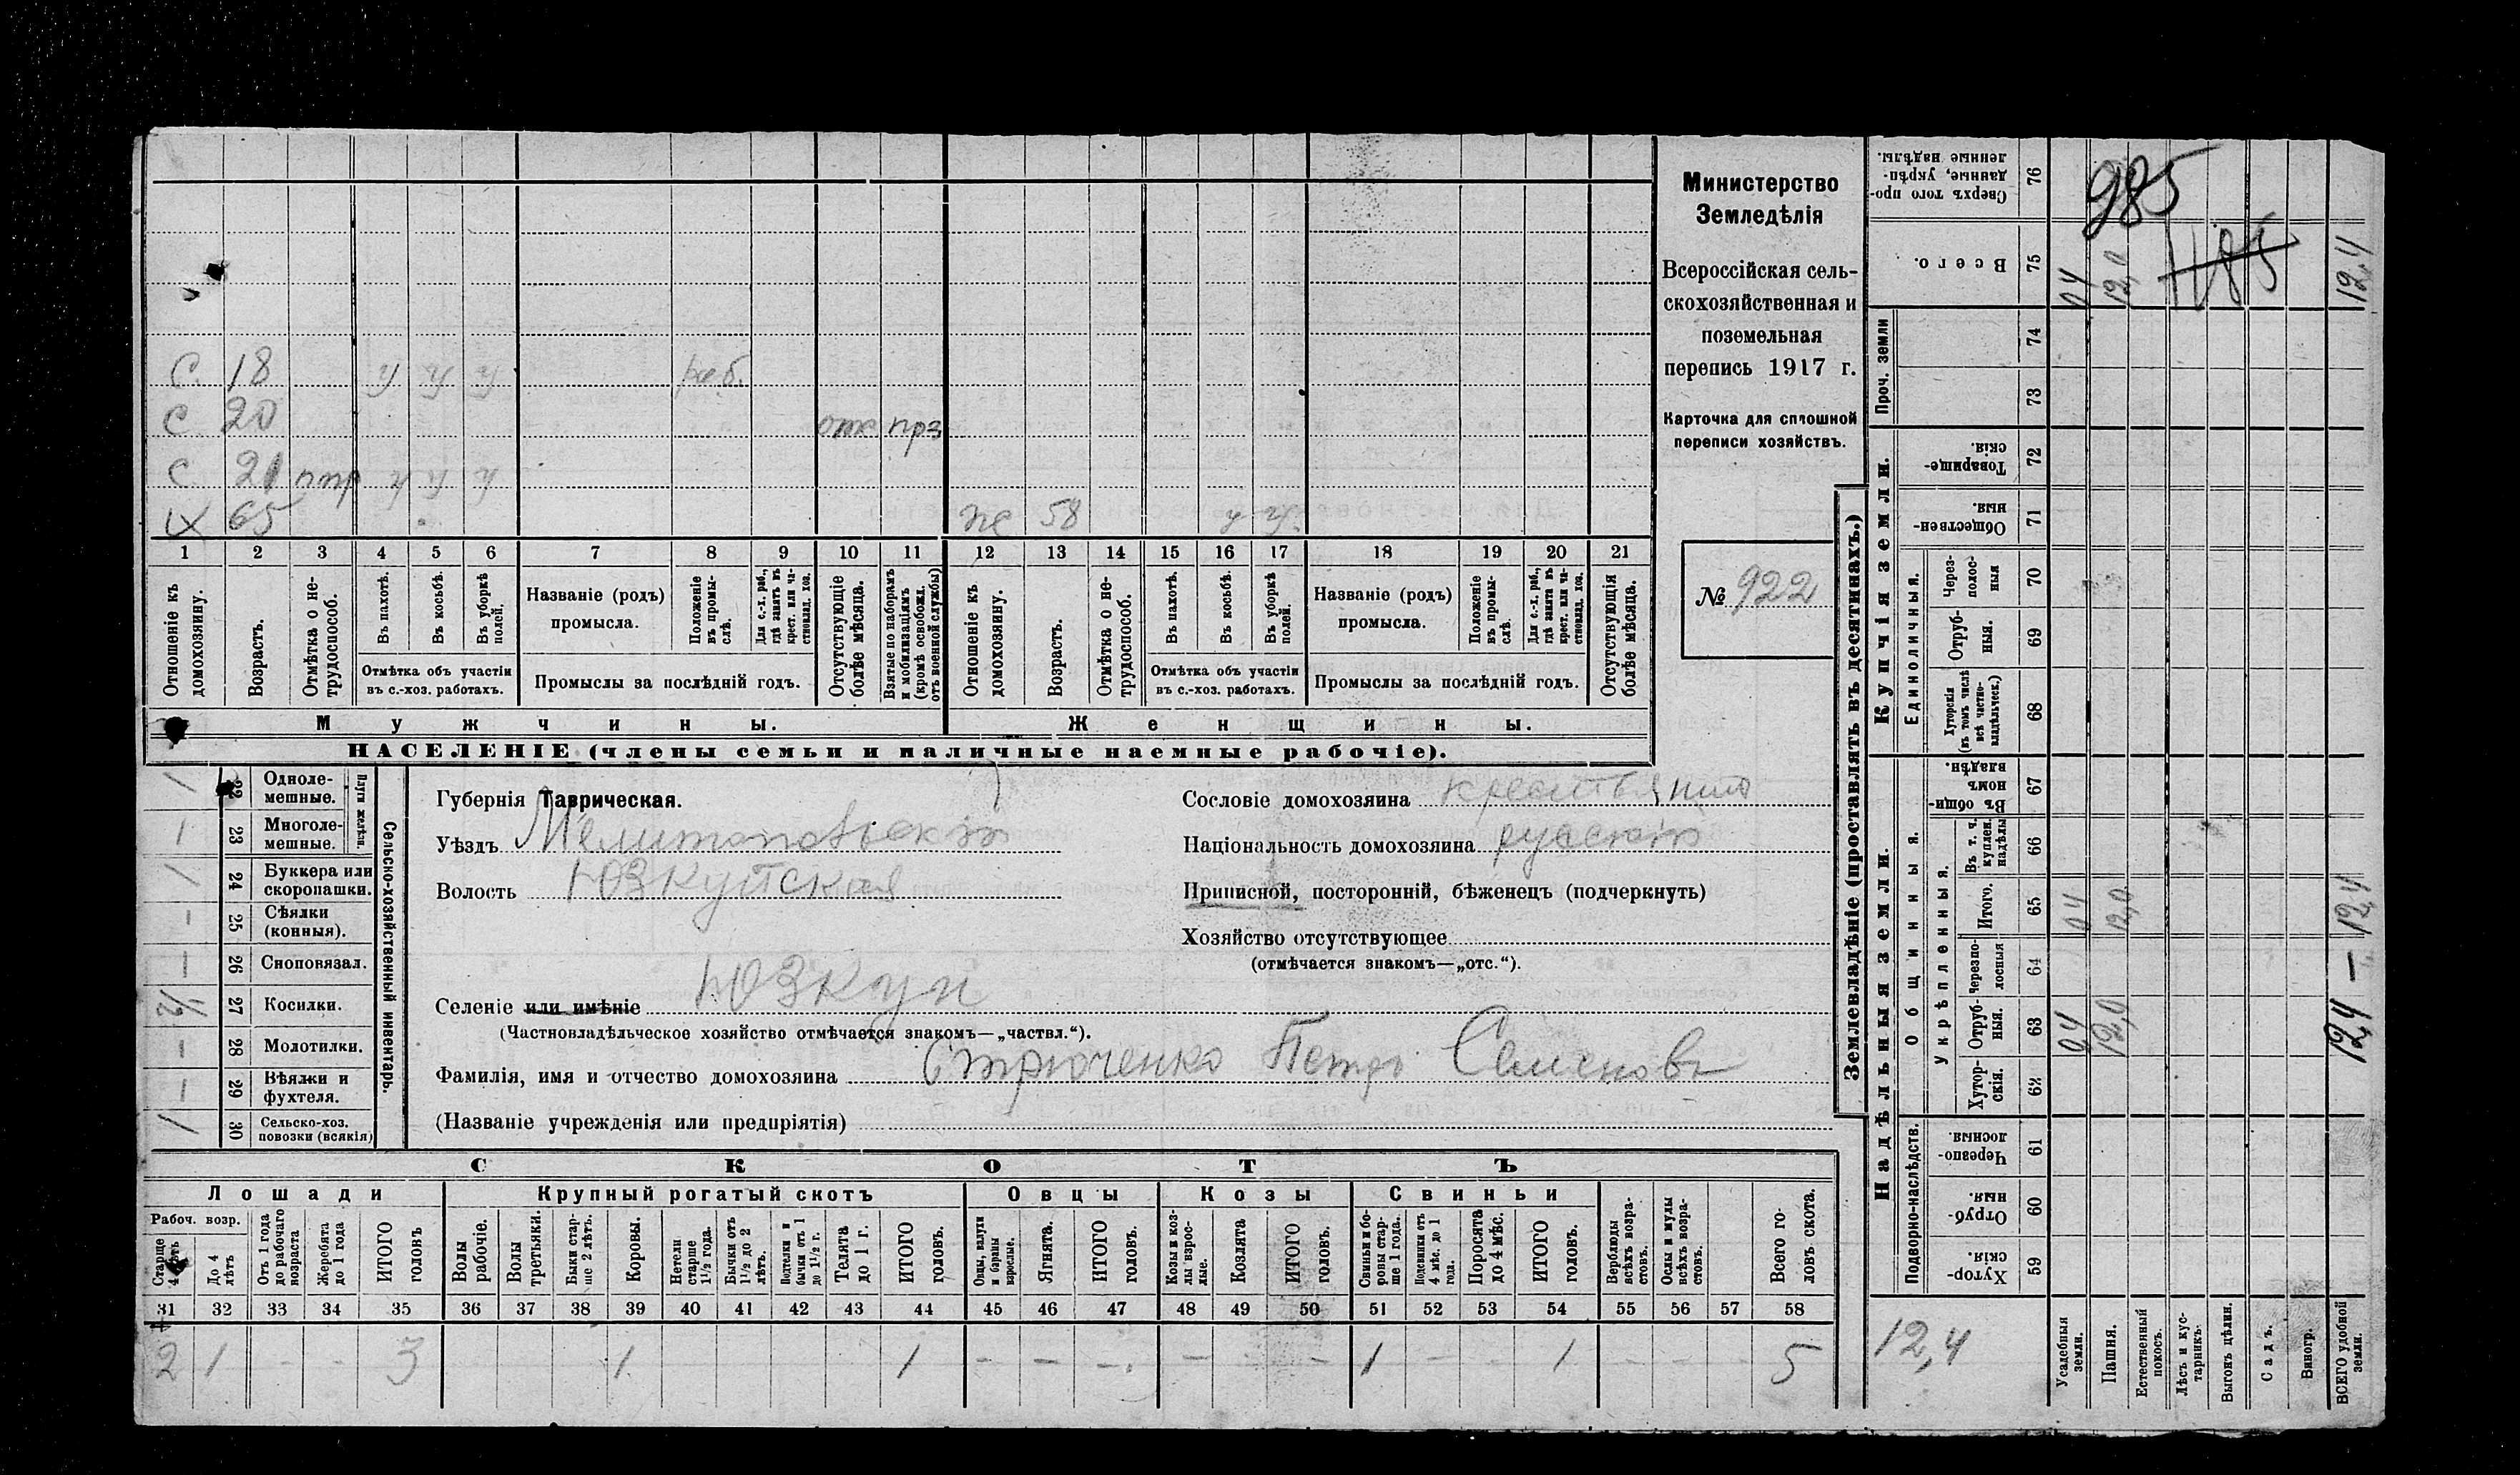 С. 18 у у у раб.
С 20 отс прз
С 21 у у у
65 же 58 у у
1 2 3 4 5 6 7 8 9 10 11 12 13 14 15 16 17 18 19 20 21
Отношеніе къ домохозяину.
Возрастъ.
Отмѣтка о не-
трудоспособ.
Въ пахотѣ.
Въ косьбѣ.
Въ уборкѣ
полей.
Отмѣтка объ участіи
въ с.-хоз. работахъ.
Названіе (родъ)
промысла.
Положеніе
въ промы-
слѣ.
Для с.-х. раб.,
гдѣ занятъ въ
крест. или ча-
стновлад. хоз.
Промыслы за послѣдній годъ.
Отсутствующіе
болѣе мѣсяца.
Взятые по наборамъ
и мобилизаціямъ
(кромѣ освобожд.
отъ военной службы)
Отношеніе къ
домохозяину.
Возрастъ.
Отмѣтка о не-
трудоспособ.
Въ пахотѣ.
Въ косьбѣ.
Въ уборкѣ
полей.
Отмѣтка объ участіи
въ с.-хоз. работахъ.
Названіе (родъ)
промысла.
Положеніе
въ промы-
слѣ.
Для с.-х. раб.,
гдѣ занята въ
крест. или ча-
стновлад. хоз.
Промыслы за послѣдній годъ.
Отсутствующія
болѣе мѣсяца.
Мужчины.
Женщины.
НАСЕЛЕНІЕ (члены семьи и наличные наемные рабочіе).
Министерство
Земледѣлія
Всероссійская сель-
скохозяйственная и
поземельная
перепись 1917 г.
Карточка для сплошной
переписи хозяйствъ.
№ 922
Сельско-хозяйственный инвентарь.
Плуги желѣзн.
22 Одноле-
мешные.
23 Многоле-
мешные.
24 Буккера или
скоропашки.
25 Сѣялки
(конныя).
26 Сноповязал.
27 Косилки.
28 Молотилки.
29 Вѣялки и
фухтеля.
30 Сельско-хоз.
повозки (всякія)
Губернія Таврическая.
Уѣздъ Мелитопольскій
Волость Юзкуйская
Селеніе или имѣніе Юзкуи
(Частновладѣльческое хозяйство отмѣчается знакомъ—„частвл.“).
Фамилія, имя и отчество домохозяина Стрюченко Петръ Семеновъ
(Названіе учрежденія или предпріятія)
Сословіе домохозяина крестьянинъ
Національность домохозяина русскій
Приписной, посторонній, бѣженецъ (подчеркнуть)
Хозяйство отсутствующее
(отмѣчается знакомъ—„отс.“).
СКОТЪ
Лошади Крупный рогатый скотъ Овцы Козы Свиньи
Рабоч. возр.
Старше
4 лѣтъ
До 4
лѣтъ
Отъ 1 года
до рабочаго
возраста
Жеребята
до 1 года
ИТОГО
головъ
Волы
рабочіе.
Волы
третьяки.
Быки стар-
ше 2 лѣтъ.
Коровы.
Нетели
старше
1½ года.
Бычки отъ
1½ до 2
лѣтъ.
Подтелки и
бычки отъ 1
до 1½ г.
Телята
до 1 г.
ИТОГО
головъ.
Овцы, валухи
и бараны
взрослые.
Ягнята.
ИТОГО
головъ.
Козы и коз-
лы взрос-
лые.
Козлята
ИТОГО
головъ.
Свиньи и бо-
ровы стар-
ше 1 года.
Подсвинки отъ
4 мѣс. до 1
года.
Поросята
до 4 мѣс.
ИТОГО
головъ.
Верблюды
всѣхъ возра-
стовъ.
Ослы и мулы
всѣхъ возра-
стовъ.
Всего го-
ловъ скота.
31 32 33 34 35 36 37 38 39 40 41 42 43 44 45 46 47 48 49 50 51 52 53 54 55 56 57 58
2 1 - - 3 1 1 - - - - - 1 - 1 - - - 5
Землевладѣніе (проставлять въ десятинахъ.)
Надѣльныя земли.
Купчія земли.
Проч. земли
Подворно-наслѣдств.
Общинныя.
Укрѣпленныя.
Единоличныя.
Сверхъ того про-
данные, укрѣп-
ленные надѣлы.
76
985
Всего.
75 04 12,0 1185 12,4
74
73
Товарище-
скія
72
Обществен-
ныя.
71
Через-
полос-
ныя
70
Отруб-
ныя.
69
Хуторскія
(въ томъ числѣ
всѣ частно-
владѣльческ.)
68
Въ общин-
номъ
владѣн.
67
Въ т. ч.
куплен.
надѣлы
66
Итого.
65 04 12,0 12,4
Черезпо-
лосныя
64
Отруб-
ныя.
63 04 12,0 12,4
Хутор-
скія.
62
Черезпо-
лосныя
61
Отруб-
ныя.
60
Хутор-
скія.
59
12,4
Усадебныя
земли.
Пашня.
Естественный
покосъ.
Лѣсъ и кус-
тарникъ.
Выгонъ цѣлин.
Садъ.
Виногр.
ВСЕГО удобной
земли.